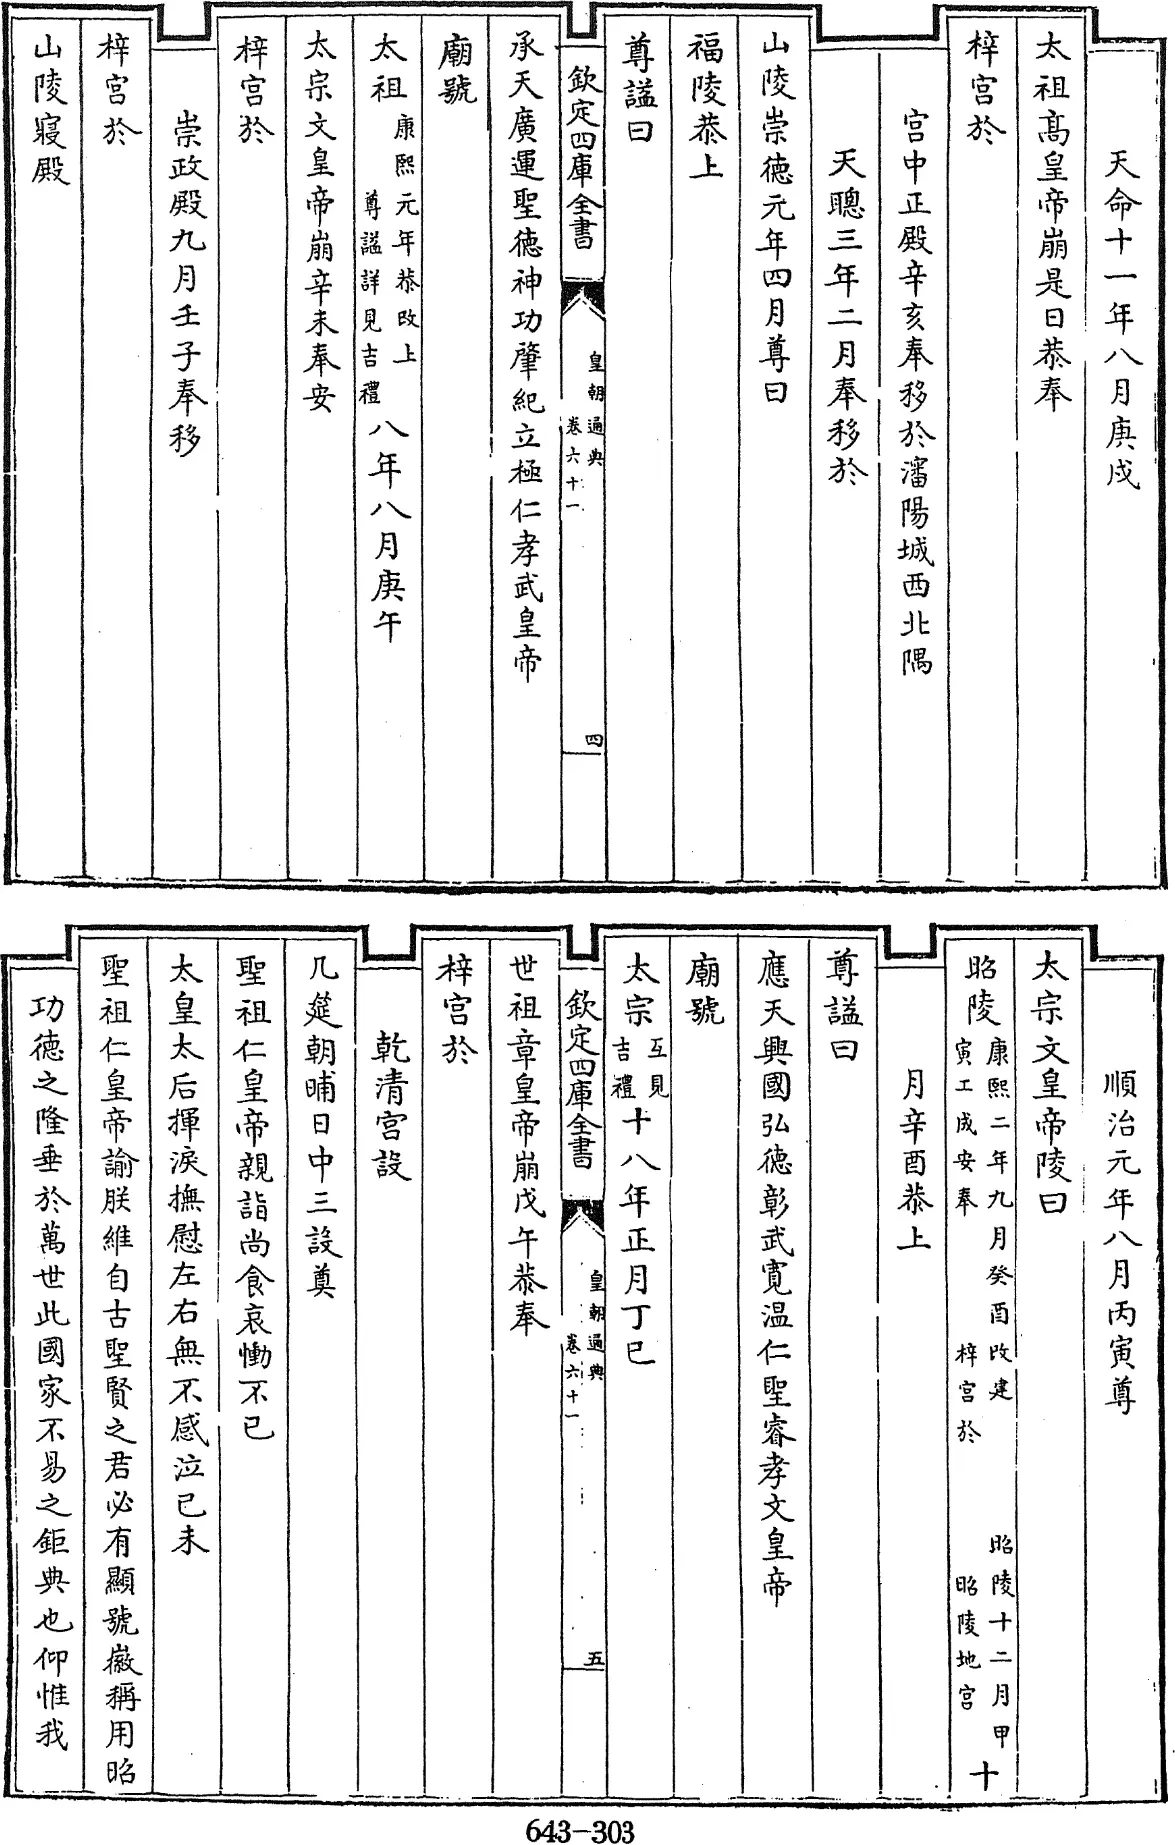 天命十一年八月庚戌
太祖高皇帝崩是日恭奉
梓宮於
宮中正殿辛亥奉移於瀋陽城西北隅
天聰三年二月奉移於
山陵崇德元年四月尊曰
福陵恭上
尊謚曰
欽定四庫全書
皇朝通典
卷六十一
四
承天廣運聖德神功肇紀立極仁孝武皇帝
廟號
太祖康熙元年恭改上尊謚詳見吉禮八年八月庚午
太宗文皇帝崩辛未奉安
梓宮於
崇政殿九月壬子奉移
梓宮於
山陵寢殿
順治元年八月丙寅尊
太宗文皇帝陵曰
昭陵康熙二年九月癸酉改建昭陵十二月甲寅工成安奉梓宮於昭陵地宮十
月辛酉恭上
尊謚曰
應天興國弘德彰武寬温仁聖睿孝文皇帝
廟號
太宗互見吉禮十八年正月丁巳
欽定四庫全書
皇朝通典
卷六十一
五
世祖章皇帝崩戊午恭奉
梓宮於
乾清宮設
几筵朝晡日中三設奠
聖祖仁皇帝親詣尚食哀慟不已
太皇太后揮淚撫慰左右無不感泣己未
聖祖仁皇帝諭朕維自古聖賢之君必有顯號徽稱用昭
功德之隆垂於萬世此國家不易之鉅典也仰惟我
643-303